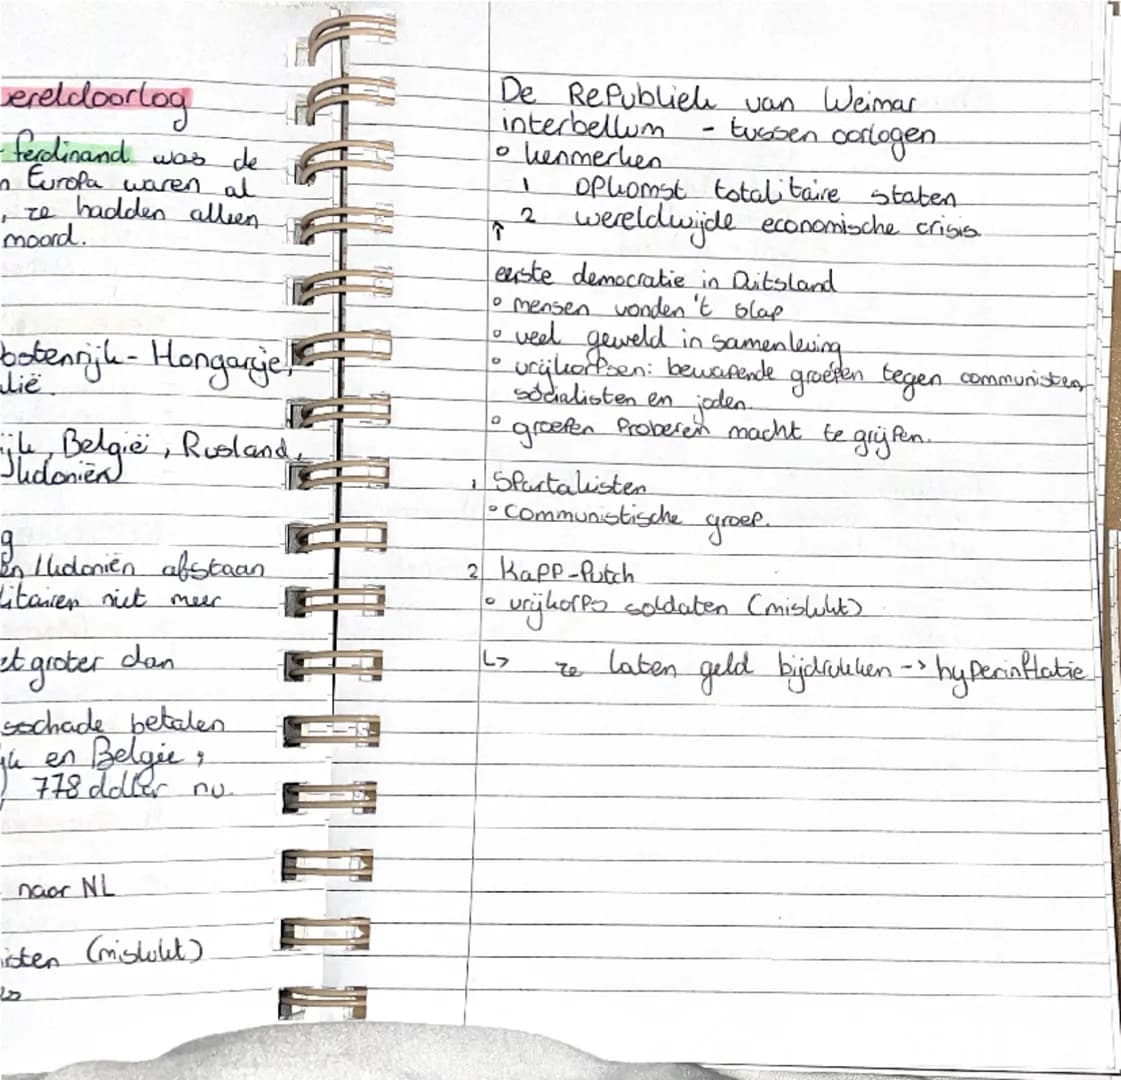 ereldoorlog
ferdinand was de
n Europa waren al
, ze hadden alleen
moord.
ostenrijk - Hongarije,
lië.
ijk, België, Rusland,
g
en / ludoniën afstaan
litairen niet meer
et groter dan
sschade betalen
jk en België,
778 dollar nu.
naar NL
isten (mislukt)
De Republiek van Weimar
interbellum - tussen oorlogen
° kenmerken
1 opkomst totalitaire staten
2 wereldwijde economische crisis
↑
eerste democratie in Duitsland
° mensen vonden 't slap
° veel geweld in samenleving
° vrijkorpsen: bewapende groepen tegen communisten,
socialisten en joden.
° groepen proberen macht te grijpen.
1 Spartakisten
° communistische groep.
2 Kapp-Putch
° vrijkorps soldaten (mislukt)
↳ ze laten geld bijdrukken -> hyperinflatie